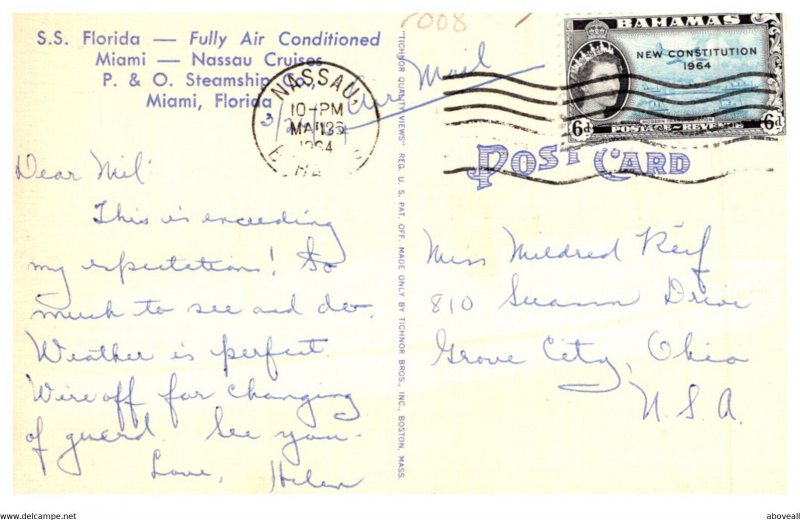 S.S. Florida — Fully Air Conditioned
Miami — Nassau Cruises
P. & O. Steamship Co.,
Miami, Florida
008
Air Mail
NASSAU,
10-PM
1964
BAHAMAS
NEW CONSTITUTION
1964
6d POSTAGE & REVENUE 6d
POST CARD
Dear Mil:
This is exceeding
my expectations! So
much to see and do.
Weather is perfect.
We're off for changing
of guard. See you.
Love, Helen
"TICHNOR QUALITY VIEWS" REG. U. S. PAT. OFF. MADE ONLY BY TICHNOR BROS., INC., BOSTON, MASS.
Miss Mildred Reif
810 Drive
Grove City, Ohio
U.S.A.
www.hipstamp.com
aboveall